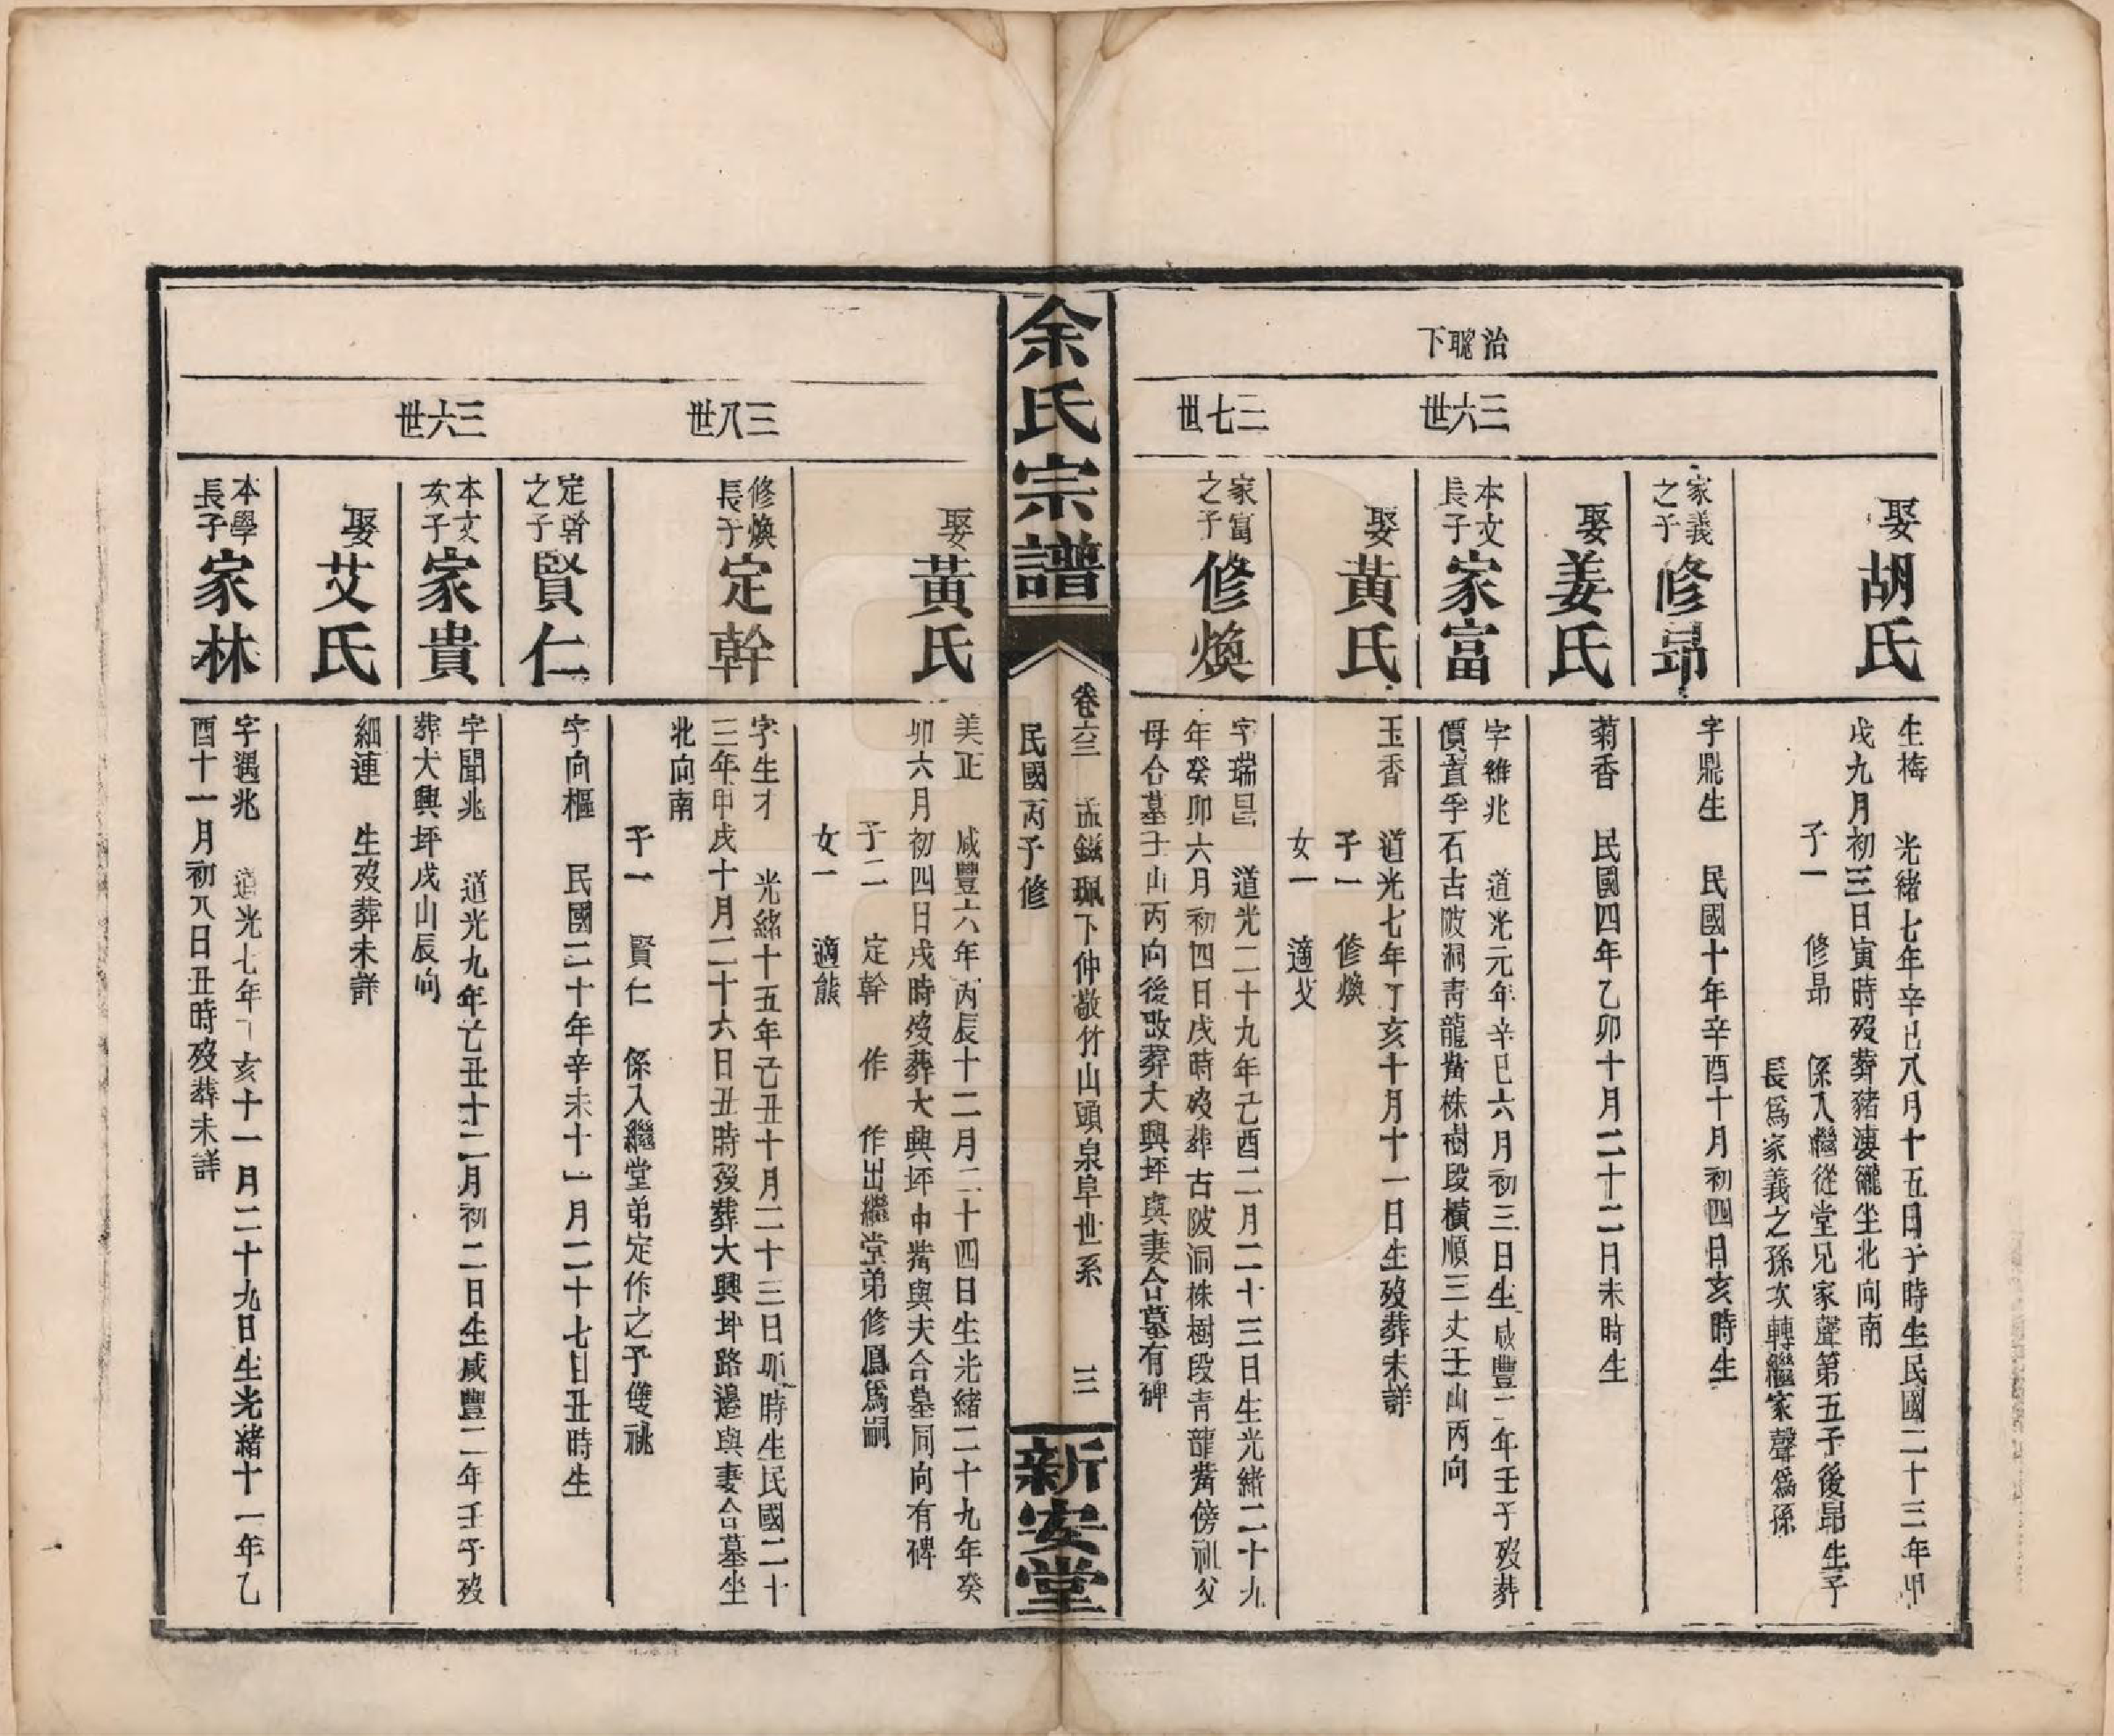 治聮下
三六世
三七世
娶胡氏
生梅 光緒七年辛巳八月十五日子時生民國二十三年甲
戌九月初三日寅時歿葬豬凄籠坐北向南
子一 修昻 係入繼從堂兄家聲第五子後昻生子
長爲家義之孫次轉繼家聲爲孫
家義之子 修昻
字鼎生 民國十年辛酉十月初四日亥時生
娶姜氏
菊香 民國四年乙卯十月二十二日未時生
本文長子 家富
字維兆 道光元年辛巳六月初三日生咸豐二年壬子歿葬
價置孚石古陂洞靑龍嘴株樹段橫順三丈壬山丙向
娶黃氏
玉香 道光七年丁亥十月十一日生歿葬未詳
子一 修煥
女一 適艾
家富之子 修煥
字瑞昌 道光二十九年己酉二月二十三日生光緒二十九
年癸卯六月初四日戌時歿葬古陂洞株樹段靑龍嘴傍祖父
母合墓壬山丙向後改葬大興坪與妻合墓有碑
余氏宗譜
卷六三 孟鎡珮下仲敬竹山頭泉阜世系 三
民國丙子修
新安堂
三八世
三六世
娶黃氏
美正 咸豐六年丙辰十二月二十四日生光緒二十九年癸
卯六月初四日戌時歿葬大興坪中嘴與夫合墓同向有碑
子二 定幹 作 作出繼堂弟修鳳爲嗣
女一 適熊
修煥長子 定幹
字生才 光緒十五年己丑十月二十三日卯時生民國二十
三年甲戌十月二十六日丑時歿葬大興坪路邊與妻合墓坐
北向南
子一 賢仁 係入繼堂弟定作之子雙祧
定幹之子 賢仁
字向樞 民國二十年辛未十一月二十七日丑時生
本文次子 家貴
字聞兆 道光九年己丑十二月初二日生咸豐二年壬子歿
葬大興坪戌山辰向
娶艾氏
細連 生歿葬未詳
本學長子 家林
字遇兆 道光七年丁亥十一月二十九日生光緒十一年乙
酉十一月初八日丑時歿葬未詳